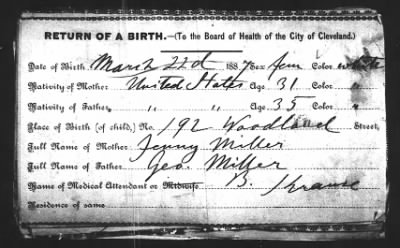 RETURN OF A BIRTH.—(To the Board of Health of the City of Cleveland.)
Date of Birth March 22d 1887 Sex fem Color white
Nativity of Mother United States Age 31 Color "
Nativity of Father " " Age 35 Color "
Place of Birth (of child,) No. 192 Woodland Street,
Full Name of Mother Jenny Miller
Full Name of Father Geo. Miller
Name of Medical Attendant or Midwife B. Krause
Residence of same